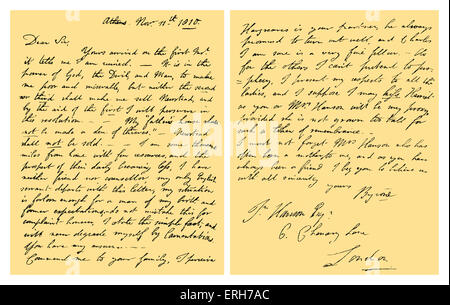 Athens. Nov. 11th 1810.
Dear Sir,
Yours arrived on the first Inst.
it tells me I am ruined. — It is in the
power of God, the Devil, and Man, to make
me poor and miserable, but neither the second
nor third shall make me sell Newstead, and
by the aid of the first I will persevere in
this resolution. — My "father's house shall
not be made a den of thieves." — Newstead
shall not be sold. — I am some thousand
miles from home with few resources, and the
prospect of their daily becoming less, I have
neither friend nor counsellor my only English
servant departs with this letter, my situation
is forlorn enough for a man of my birth and
former expectations, do not mistake this for
complaint however, I state the simple fact, and
will never degrade myself by Lamentations.
You have my answer. —
Commend me to your family, I perceive
Hargreaves is your partner, he always
promised to turn out well, and Charles
I am sure is a very fine fellow. — As
for the others I can't pretend to pro-
phecy, I present my respects to all the
ladies, and I suppose I may kiss Harriet
as you or Mrs. Hanson will be my proxy,
provided she is not grown too tall for
such a token of remembrance. —
I must not forget Mrs Hanson who has
often been a mother to me, and as you have
always been a friend I beg you to believe me
with all sincerity
yours
Byron
Jn Hanson Esqr.
6. Chancery Lane
London
alamy
Image ID: ERH7AC
www.alamy.com